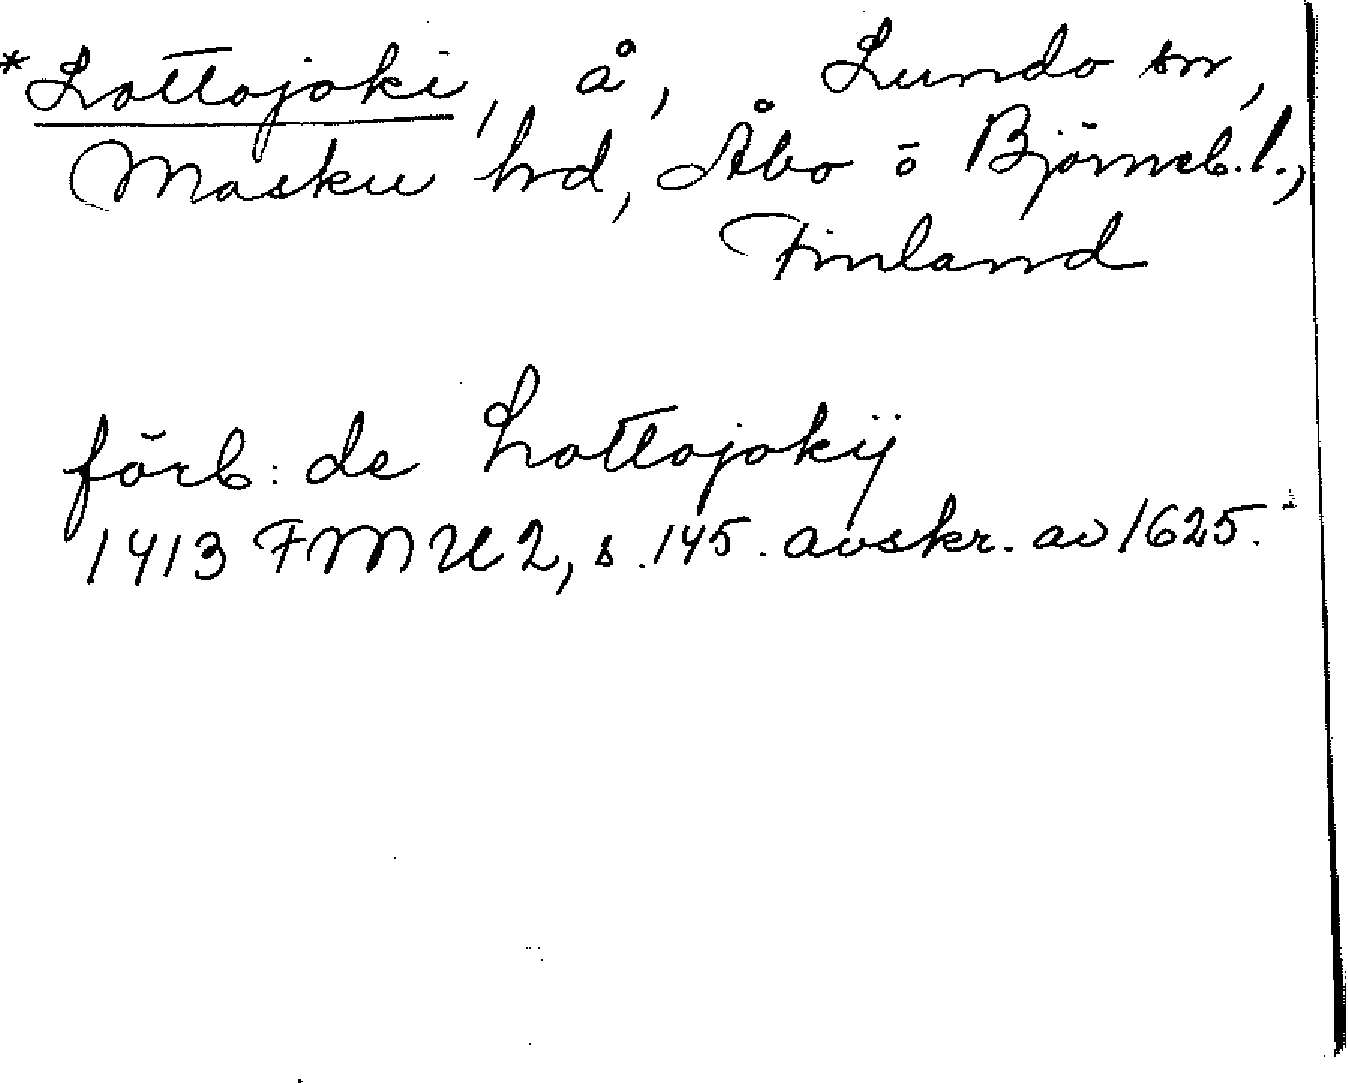 *Lottojoki, å, Lundo sn,
Masku hd, Åbo o Björneb. l.,
Finland
förb: de Lottojokij
1413 FMU 2, s. 145. avskr. av 1625.